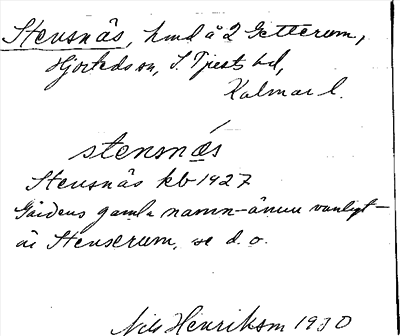 Stensnäs, hmd å 2 Getterum,
Hjorteds sn, S. Tjusts hd,
Kalmar l.
stensnæ̀s
Stensnäs kb 1927
Gårdens gamla namn - ännu vanligt -
är Stenserum, se d. o.
Nils Henriksson 1930